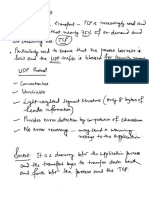 transport - TCP is increasingly used and
that nearly 75% of on-demand and
live streaming use TCP
Particularly used to ensure that the packet loss rate is
low and the UDP traffic is blocked for
UDP Protocol
- Connectionless
- Unreliable
- Light-weighted segment structure (only 8 bytes of
header information)
- Provides error detection by computation of checksum
- No error recovery - may send a warning
message to the application
Socket: It is a doorway b/w the application process
and the transport layer to transfer data back
and forth b/w the process and the TCP.